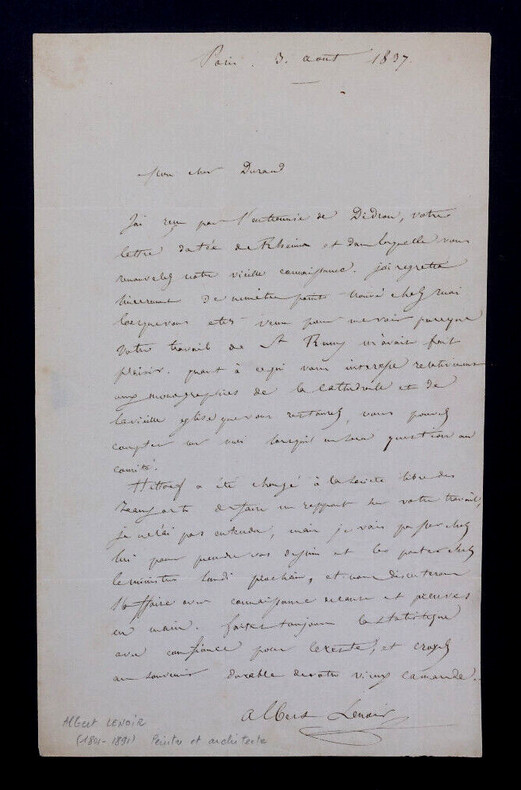 Paris. 3. aout 1837
Mon cher Durand
J'ai reçu par l'entremise de Didron, votre
lettre datée de Rheims et dans laquelle vous
renouvelez notre vieille connaissance. j'ai regretté
de m'être point trouvé chez moi
lorsque vous etes venu pour me voir puisque
votre travail de St Remy m'avait fait
plaisir. quant à ce qui vous intéresse relativement
aux monographies de la Cathédrale et de
la vieille eglise que vous restaurez, vous pouvez
compter sur moi lorsqu'il en sera question au
comité.
Hittorf a été chargé à la Société libre des
Beaux arts de faire un rapport sur votre travail,
je ne l'ai pas entendu, mais je vais passer chez
lui pour prendre vos dessins et les porter chez
le ministre lundi prochain, et nous discuterons
l'affaire avec connaissance de cause et preuves
en main. faites toujours la statistique
avec confiance pour l'exécuté, et croyez
au souvenir durable de votre vieux camarade.
Albert Lenoir
Albert LENOIR
(1801-1891) Peintre et architecte